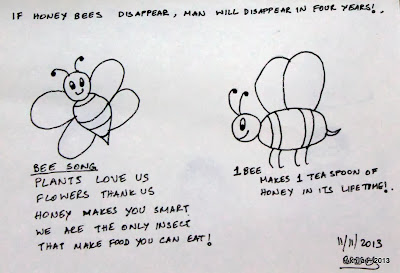 IF HONEY BEES DISAPPEAR, MAN WILL DISAPPEAR IN FOUR YEARS!.
BEE SONG
PLANTS LOVE US
FLOWERS THANK US
HONEY MAKES YOU SMART
WE ARE THE ONLY INSECT
THAT MAKE FOOD YOU CAN EAT!
1 BEE
MAKES 1 TEASPOON OF
HONEY IN ITS LIFETIME!.
11/11/2013